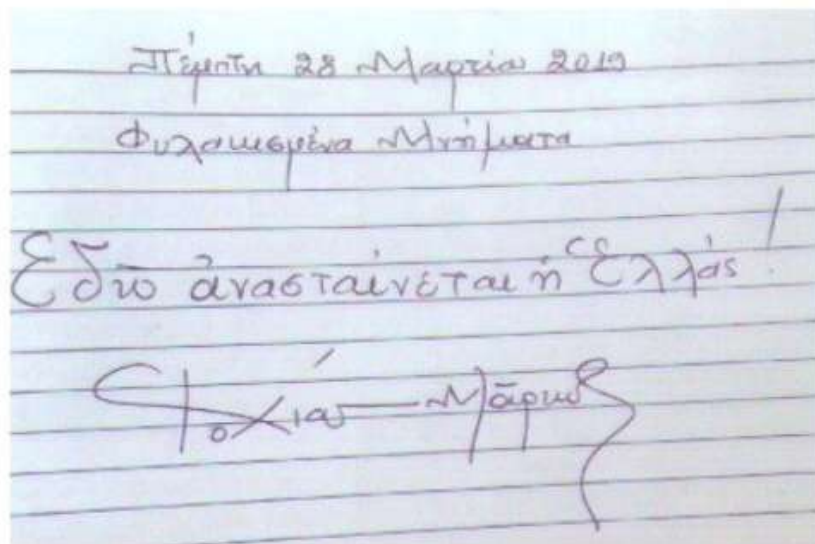 Πέμπτη 28 Μαρτίου 2019
Φυλακισμένα Μνήματα
Ἐδῶ ἀνασταίνεται ἡ Ἑλλάς!
Μάρκος